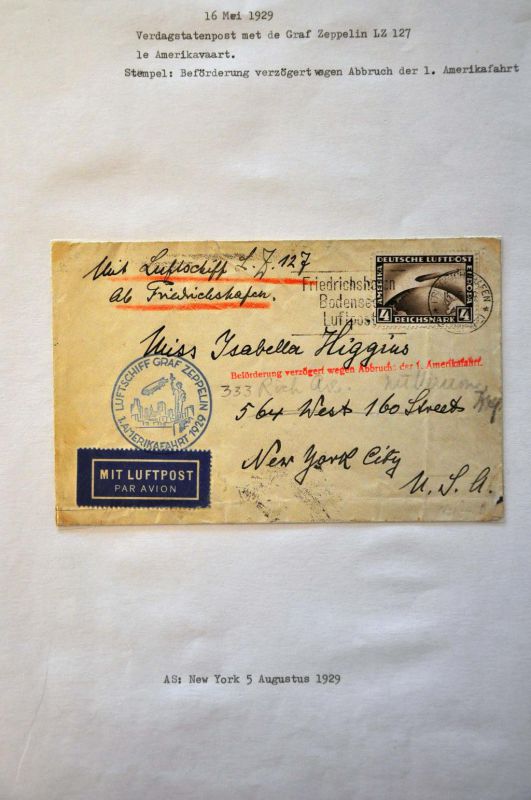 16 Mei 1929
Verdagstatenpost met de Graf Zeppelin LZ 127
1e Amerikavaart.
Stempel: Beförderung verzögert wegen Abbruch der 1. Amerikafahrt
Mit Luftschiff L.Z. 127
Ab Friedrichshafen.
DEUTSCHE LUFTPOST
AMERIKA
EUROPA
4 REICHSMARK 4
Friedrichshafen
Bodensee
Luftpost
Miss Isabella Higgins
Beförderung verzögert wegen Abbruchs der 1. Amerikafahrt.
333
564 West 160 Street
New York City
U. S. A.
LUFTSCHIFF GRAF ZEPPELIN
1. AMERIKAFAHRT 1929
MIT LUFTPOST
PAR AVION
AS: New York 5 Augustus 1929